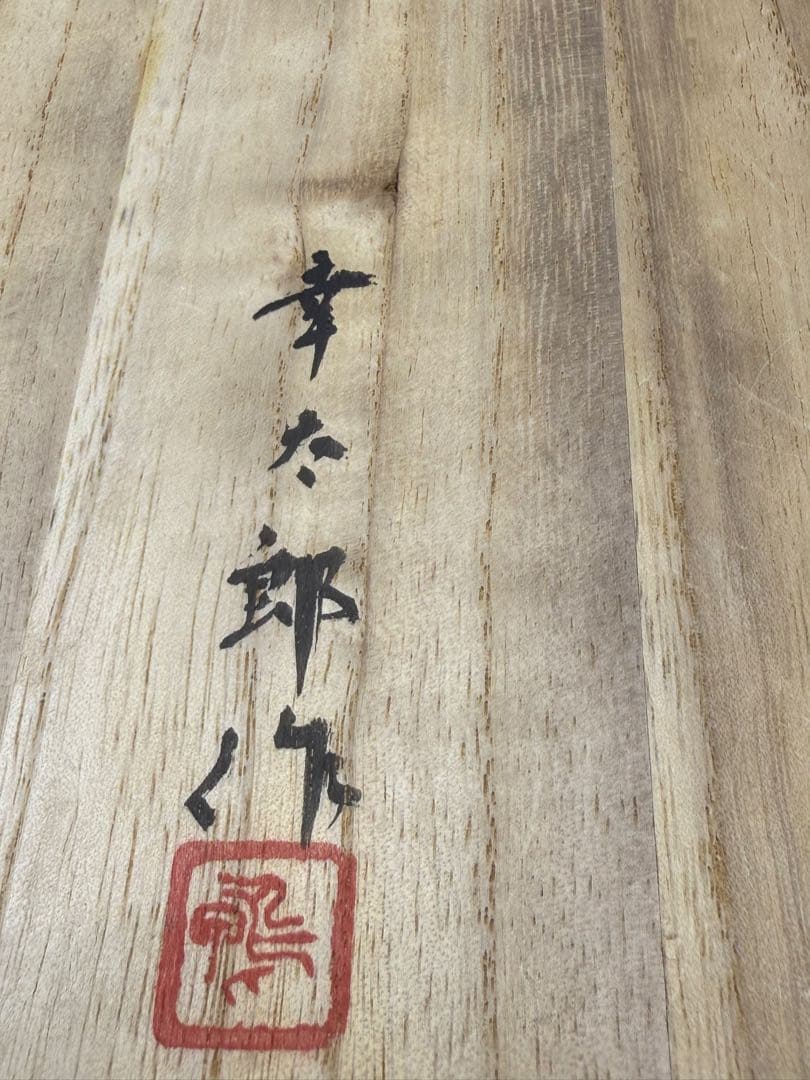 幸太郎作